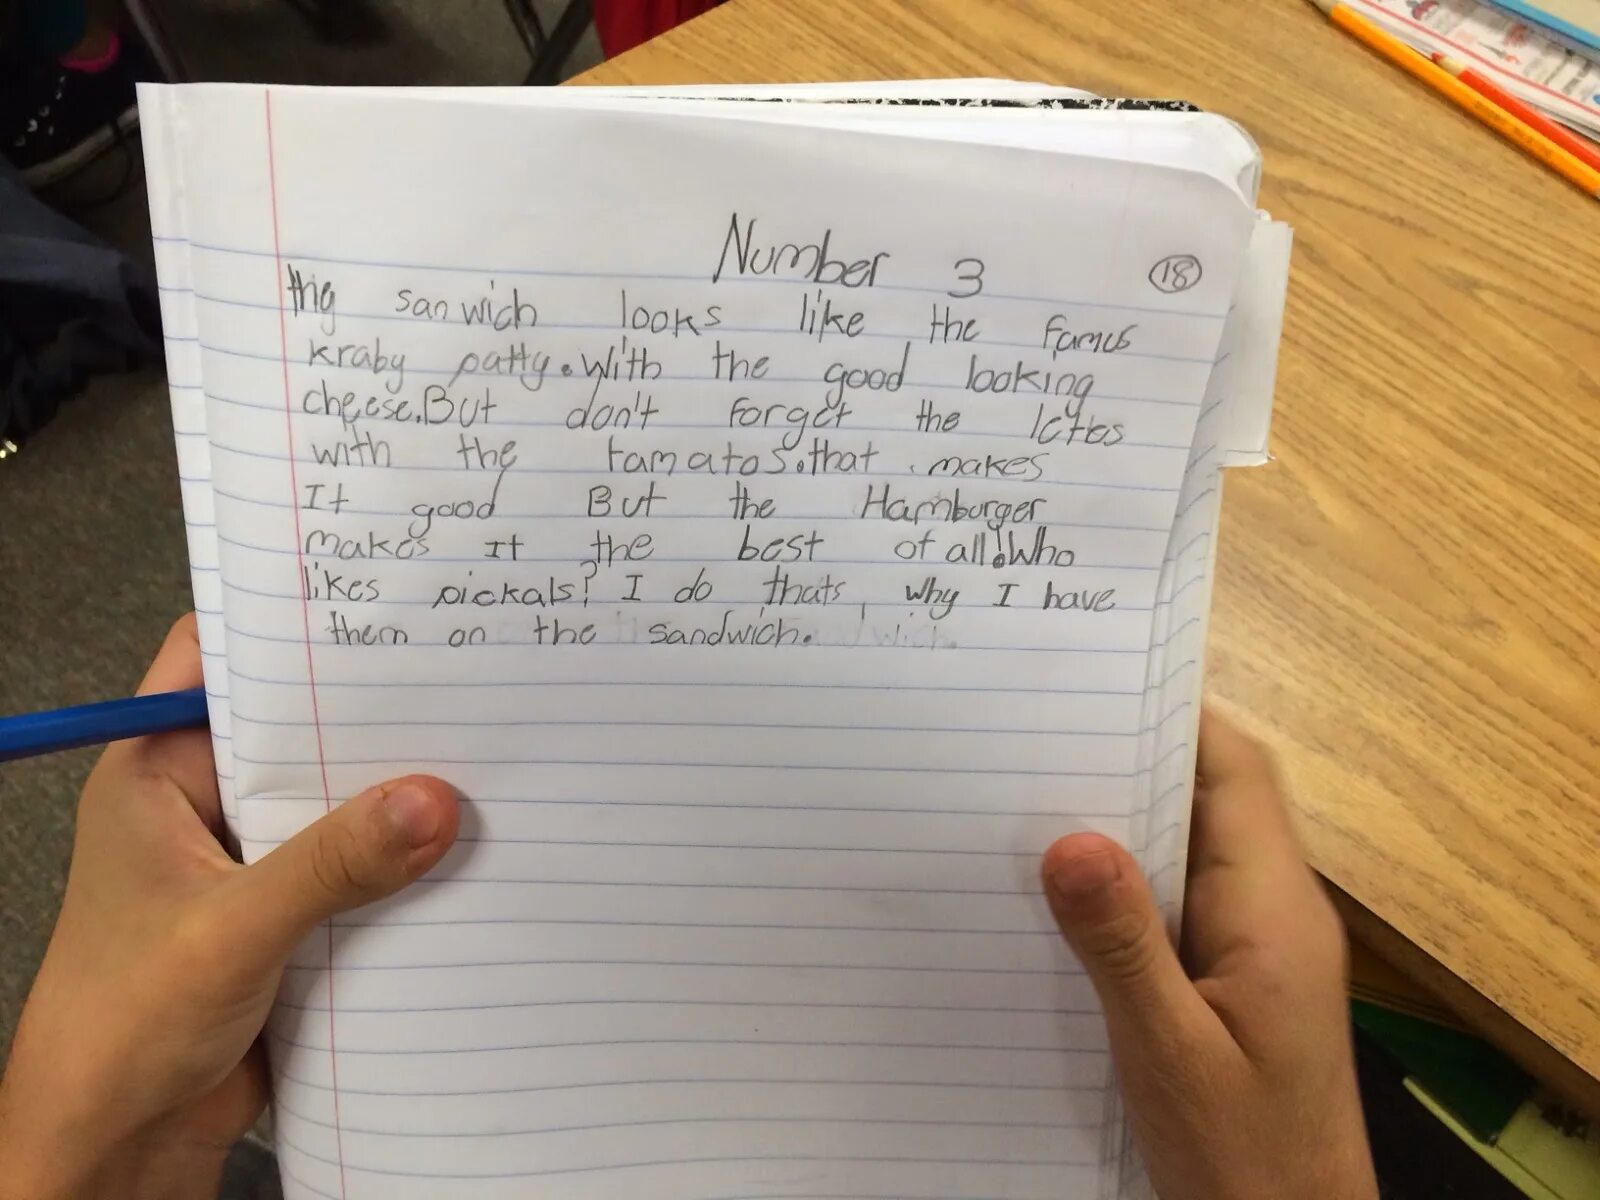 Number 3
18
this sanwich looks like the famus
kraby patty. With the good looking
cheese. But don't forget the letes
with the tamatos. that makes
It good But the Hamburger
makes It the best of all! Who
likes pickals? I do thats, why I have
them on the sandwich.